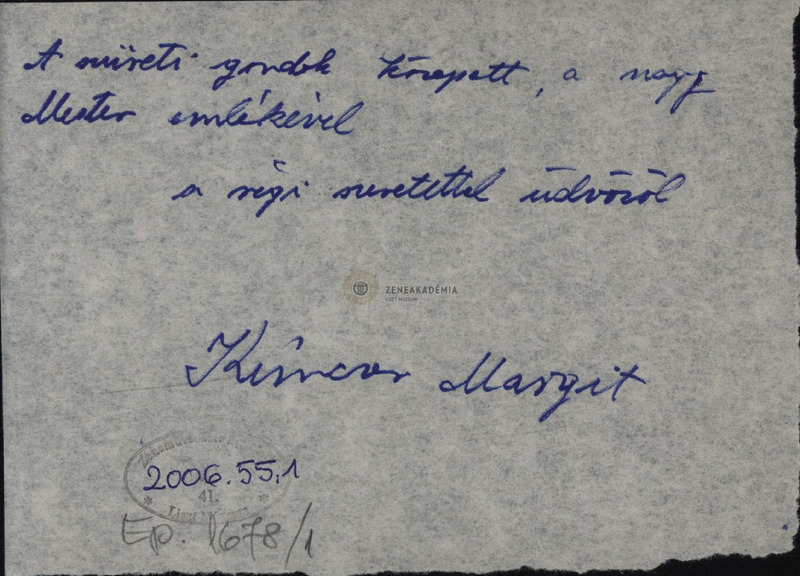 A szüreti gondok közepett, a nagy
Mester emlékével
a régi szeretettel üdvözöl
ZENEAKADÉMIA
LISZT MÚZEUM
Margit
2006.55.1
41.
Ep. 1678/1